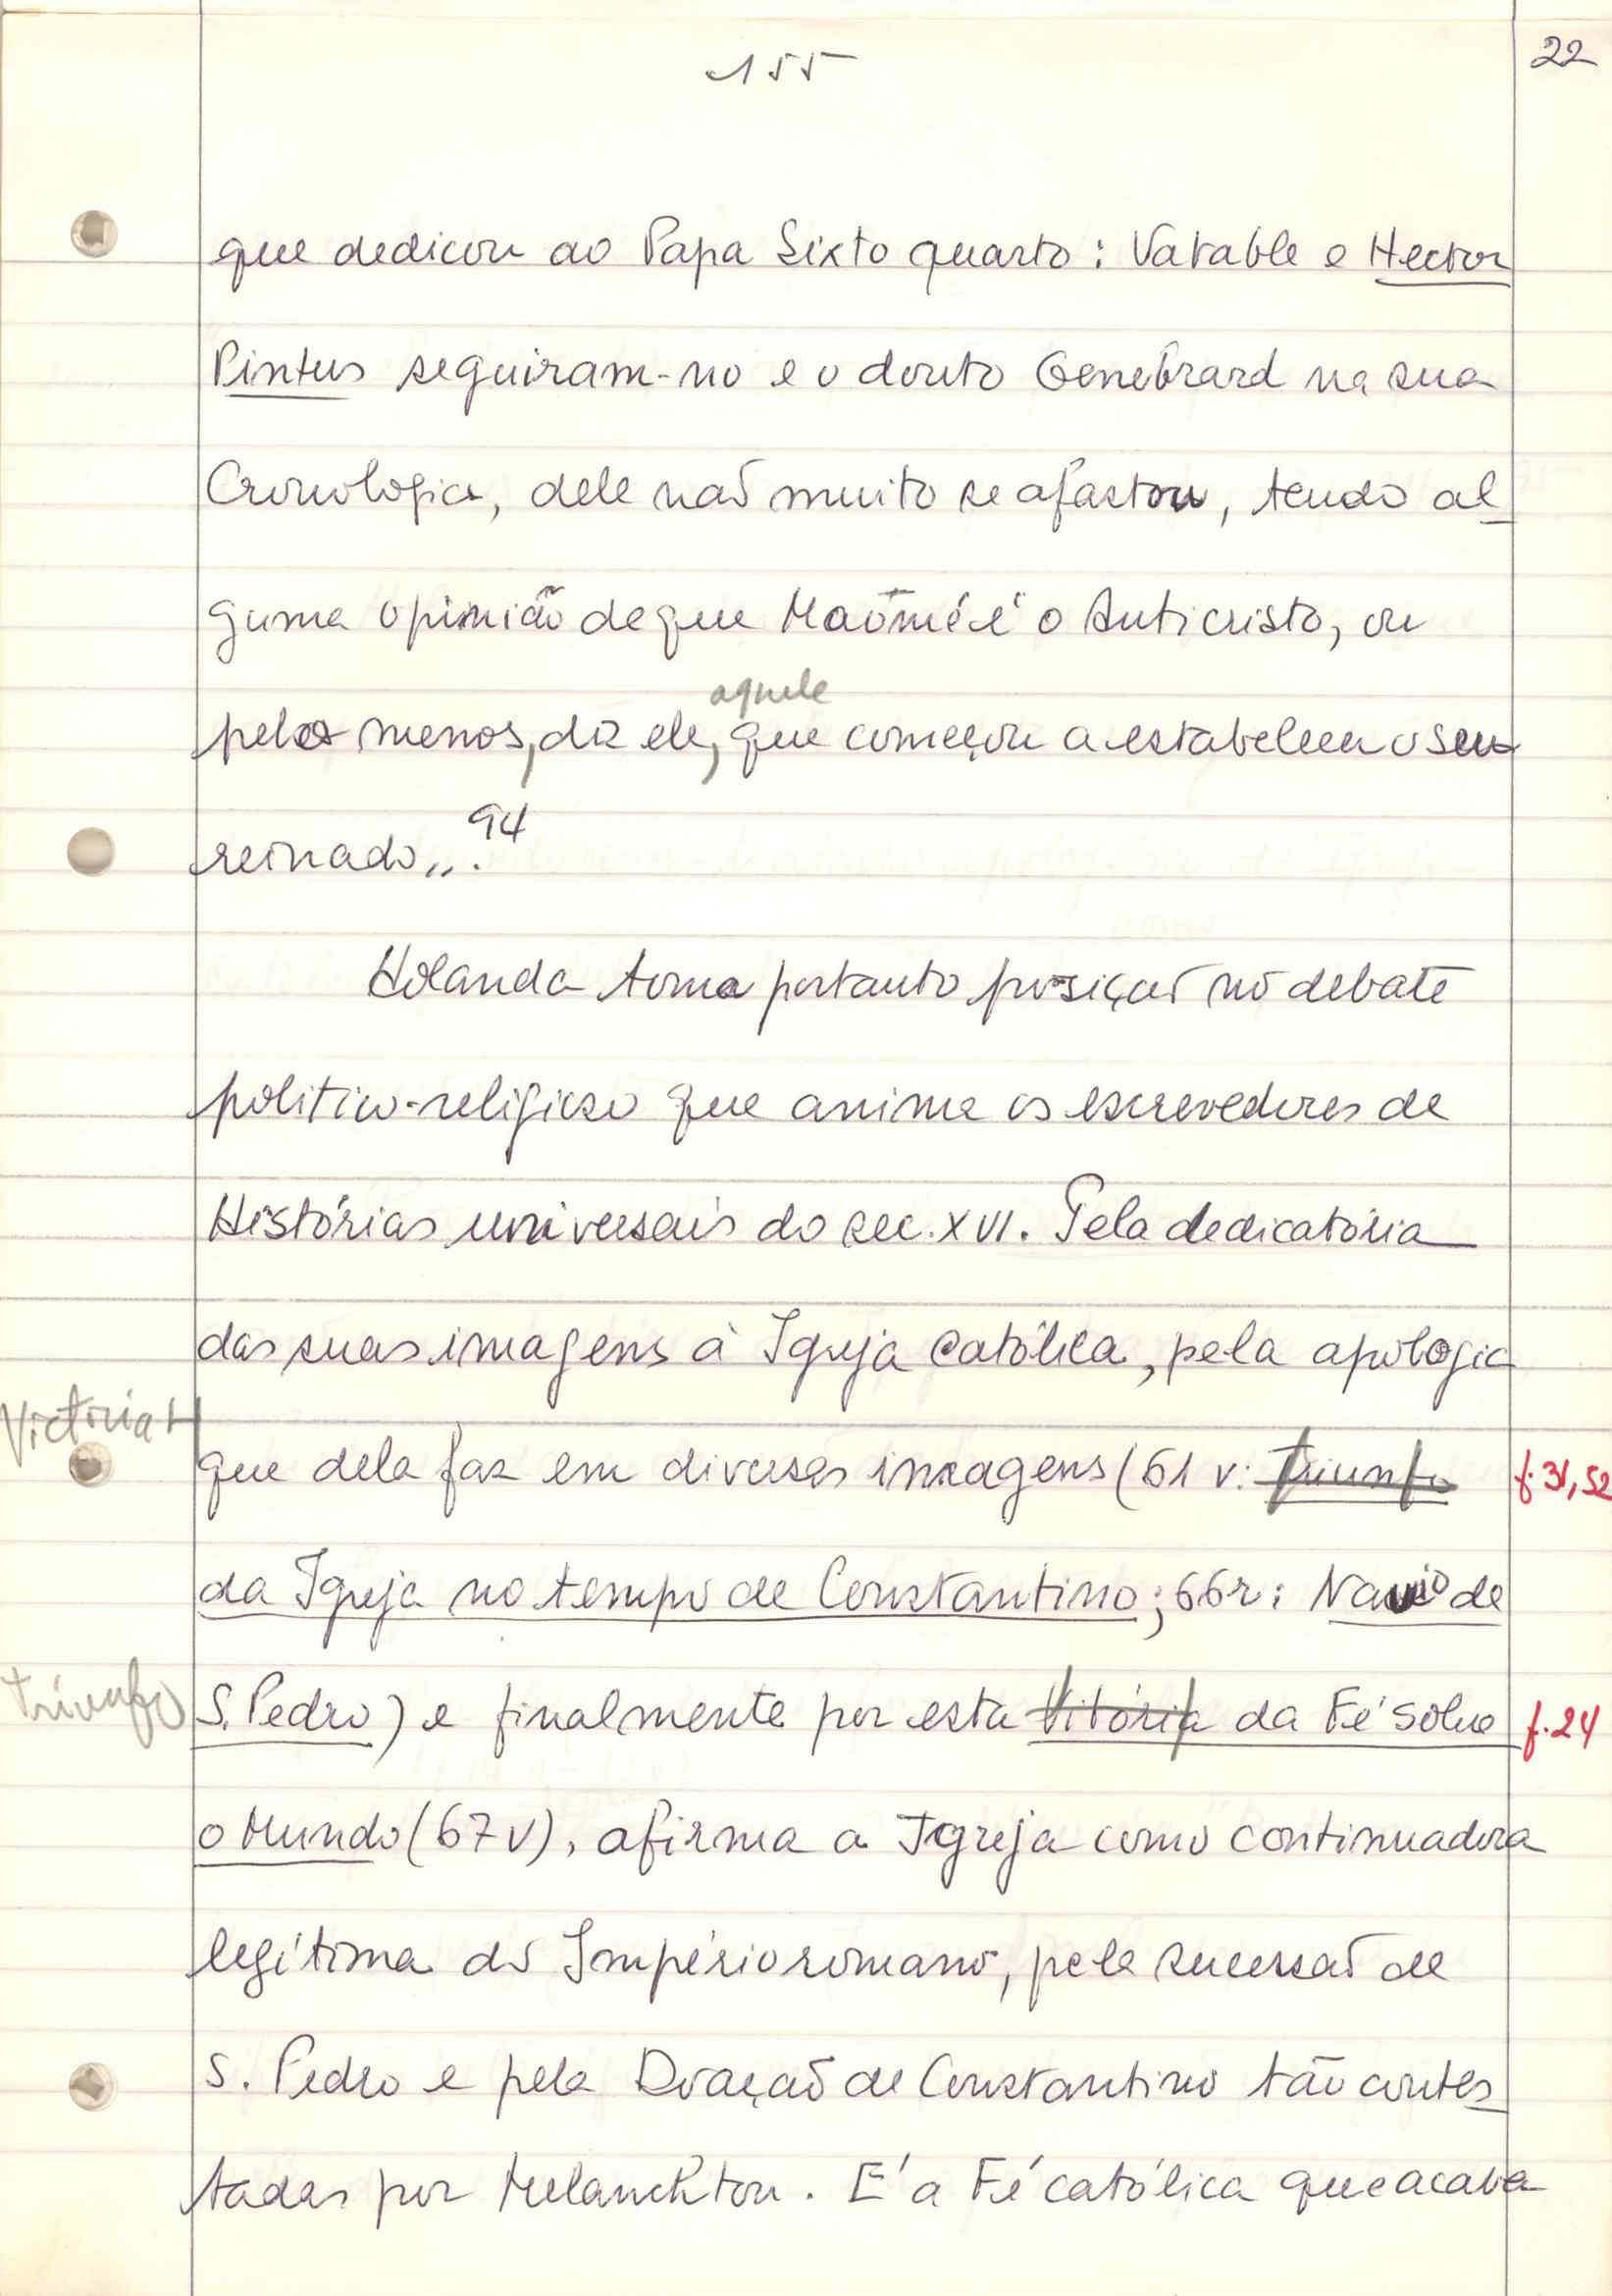 155
22
que dedicou ao Papa Sixto quarto: Vatable e Hector
Pintus seguiram-no e o douto Genebrard na sua
Cronologia, dele não muito se afastou, tendo al-
guma opinião de que Maomé é o Anticristo, ou
aquele
pelo menos, diz ele, que começou a estabelecer o seu
reinado„.94
Holanda toma portanto posição no debate
politico-religioso que anima os escrevedores de
Histórias universais do sec. XVI. Pela dedicatória
das suas imagens à Igreja Católica, pela apologia
Victoria
que dela faz em diversas imagens (61 v: Triunfo
f. 31, 52
da Igreja no tempo de Constantino; 66r: Navio de
Triunfo
S. Pedro) e finalmente por esta Vitória da Fé sobre
f. 24
o Mundo (67v), afirma a Igreja como continuadora
legítima do Império romano, pela sucessão de
S. Pedro e pela Doação de Constantino tão contes-
tadas por Melanchton. E' a Fé católica que acaba